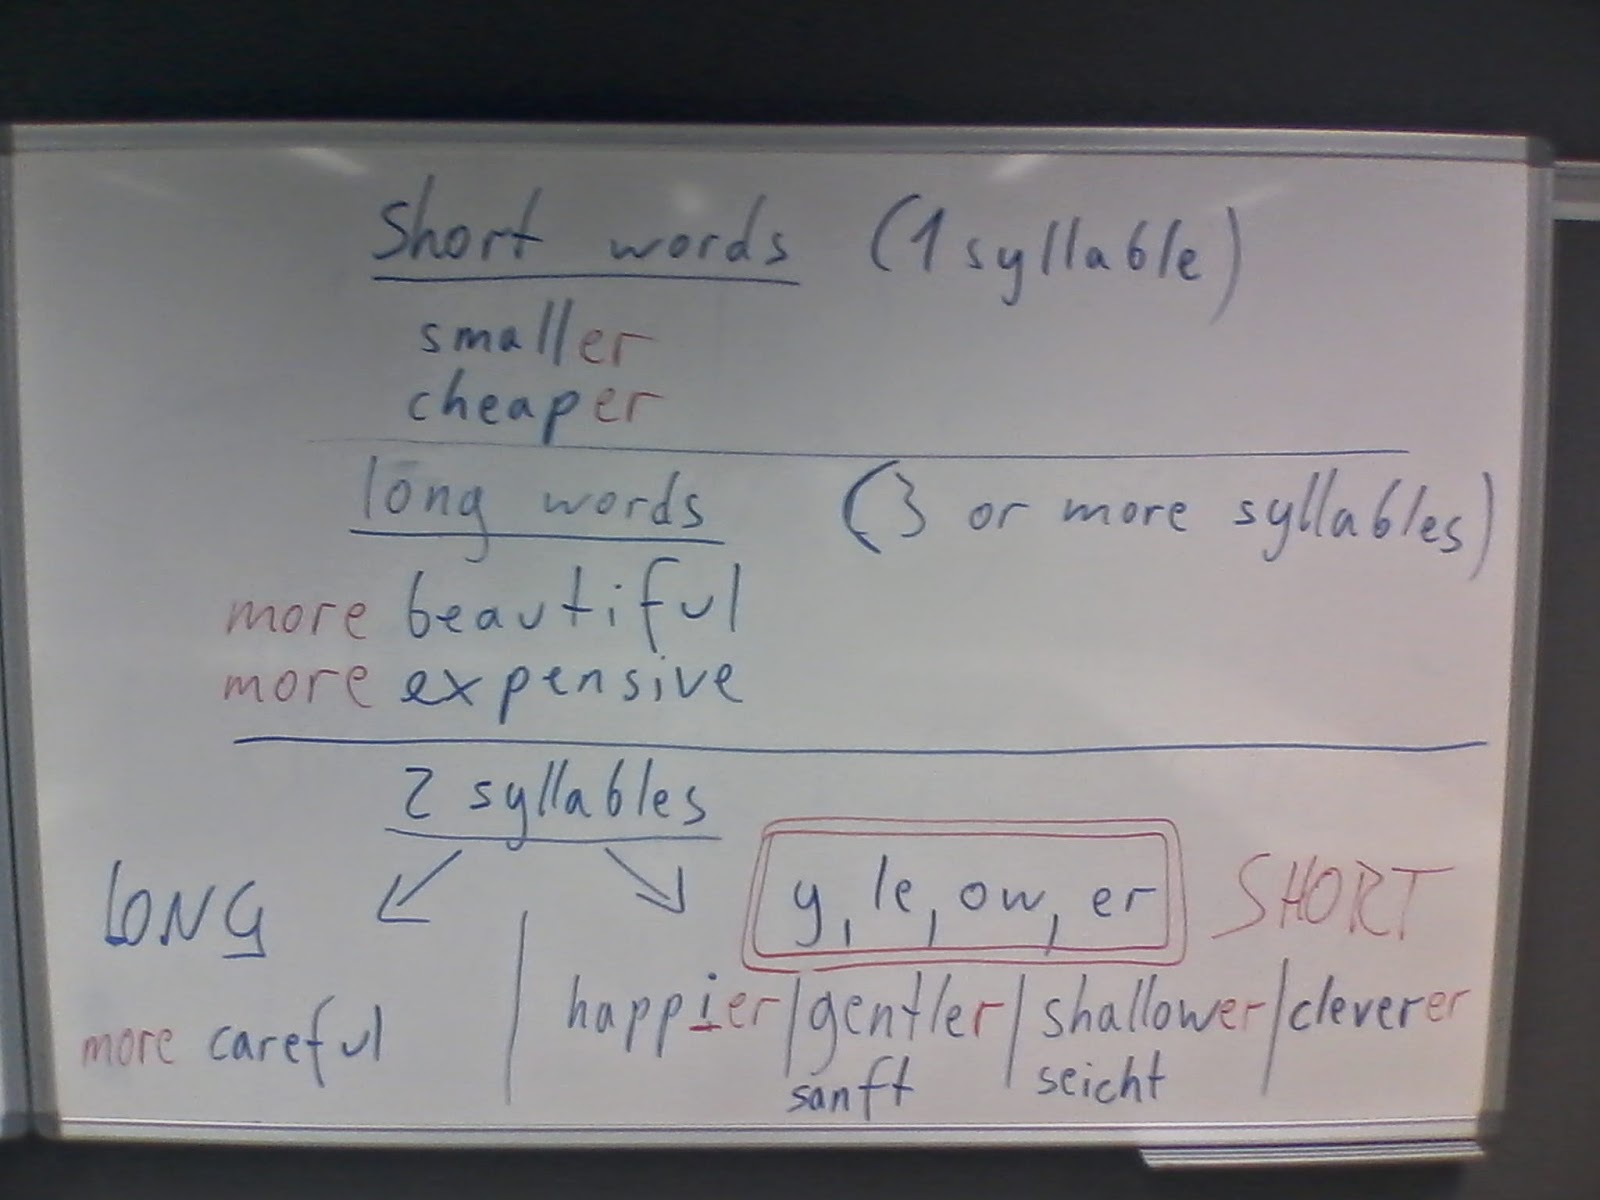 Short words (1 syllable)
smaller
cheaper
long words (3 or more syllables)
more beautiful
more expensive
2 syllables
LONG
y, le, ow, er SHORT
more careful
happier/gentler/shallower/cleverer
sanft seicht